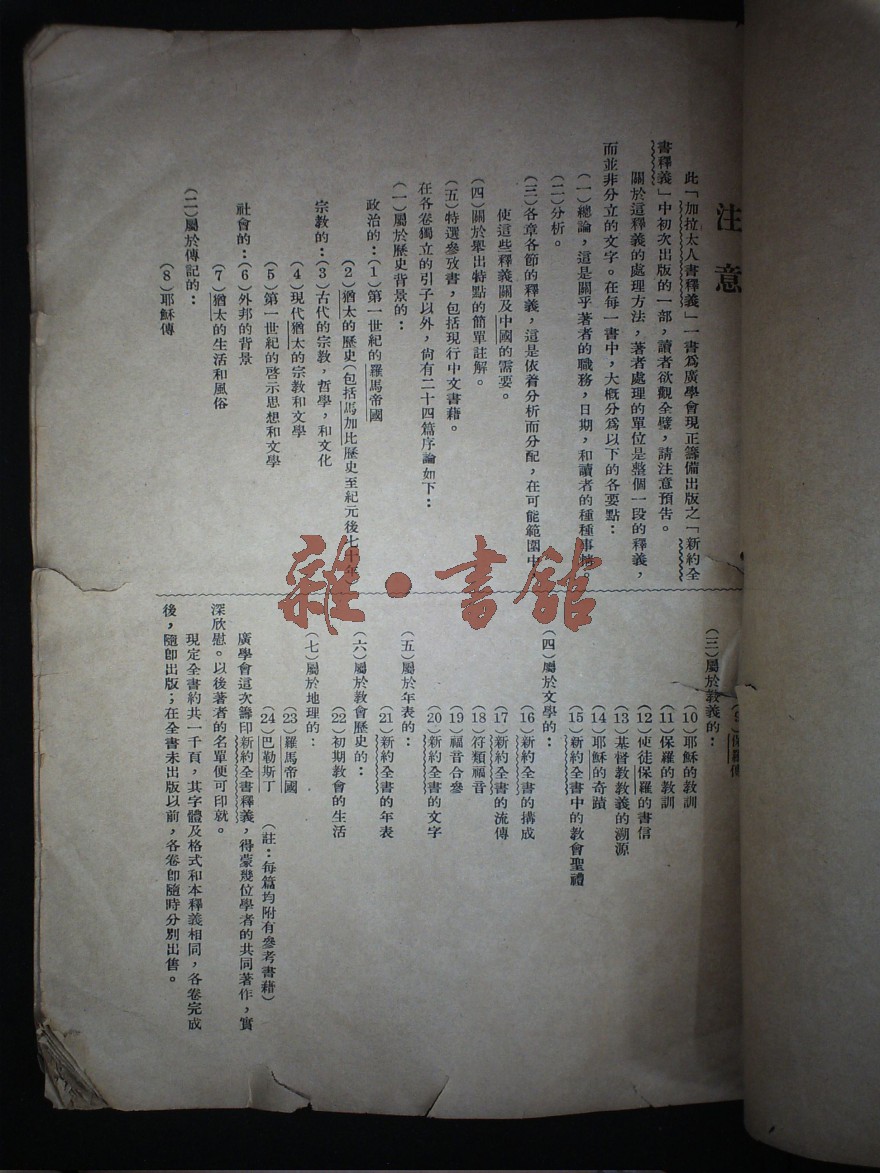 注意
此「加拉太人書釋義」一書為廣學會現正籌備出版之「新約全
書釋義」中初次出版的一部，讀者欲觀全璧，請注意預告。
關於這釋義的處理方法，著者處理的單位是整個一段的釋義，
而並非分立的文字。在每一書中，大概分為以下的各要點：
（一）總論，這是關乎著者的職務，日期，和讀者的種種事情。
（二）分析。
（三）各章各節的釋義，這是依着分析而分配，在可能範圍中，
使這些釋義關及中國的需要。
（四）關於舉出特點的簡單註解。
（五）特選參攷書，包括現行中文書藉。
在各卷獨立的引子以外，尙有二十四篇序論如下：
（一）屬於歷史背景的：
政治的：（1）第一世紀的羅馬帝國
（2）猶太的歷史（包括馬加比歷史至紀元後七十年
宗教的：（3）古代的宗教，哲學，和文化
（4）現代猶太的宗教和文學
（5）第一世紀的啓示思想和文學
社會的：（6）外邦的背景
（7）猶太的生活和風俗
（二）屬於傳記的：
（8）耶穌傳
（9）保羅傳
（三）屬於教義的：
（10）耶穌的教訓
（11）保羅的教訓
（12）使徒保羅的書信
（13）基督教教義的溯源
（14）耶穌的奇蹟
（15）新約全書中的教會聖禮
（四）屬於文學的：
（16）新約全書的搆成
（17）新約全書的流傳
（18）符類福音
（19）福音合參
（20）新約全書的文字
（五）屬於年表的：
（21）新約全書的年表
（六）屬於教會歷史的：
（22）初期教會的生活
（七）屬於地理的：
（23）羅馬帝國
（24）巴勒斯丁　（註：每篇均附有參考書藉）
廣學會這次籌印新約全書釋義，得蒙幾位學者的共同著作，實
深欣慰。以後著者的名單便可印就。
現定全書約共一千頁，其字體及格式和本釋義相同，各卷完成
後，隨卽出版；在全書未出版以前，各卷卽隨時分別出售。
雜·書舘